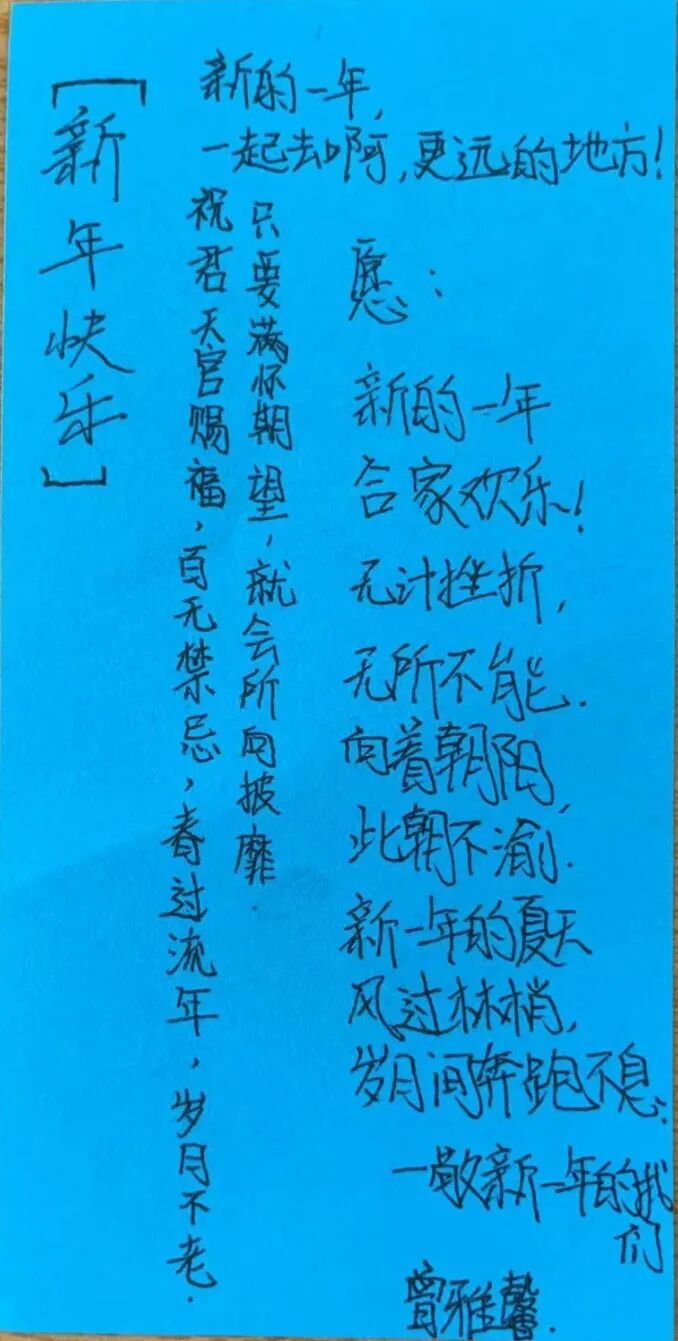 [新年快乐]
新的一年,
一起去啊,更远的地方!
只要满怀期望,就会所向披靡.
祝君天官赐福,百无禁忌,春过流年,岁月不老.
愿:
新的一年
合家欢乐!
无计挫折,
无所不能.
向着朝阳,
此朝不渝.
新一年的夏天
风过林梢,
岁月间奔跑不息:
一敬新一年的我
们
曾雅馨.